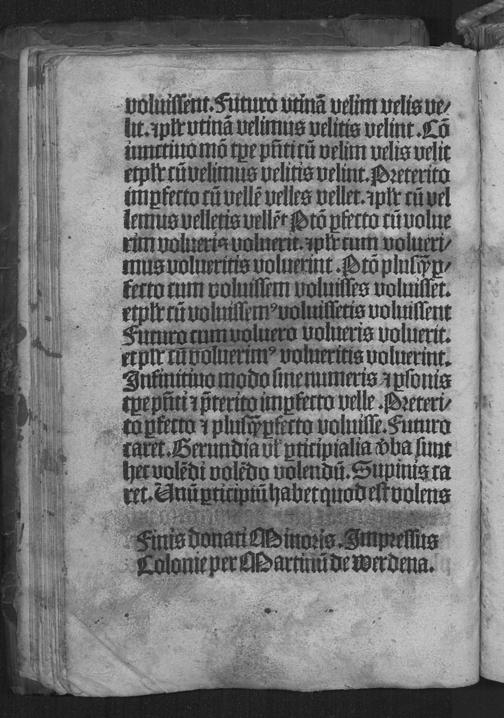 voluissent. Futuro vtinã velim velis ve/
lit. ⁊plr̃ vtinã velimus velitis velint. Cõ
iunctiuo mõ tꝑe pñti cũ velim velis velit
etplr̃ cũ velimus velitis velint. Preterito
imꝑfecto cũ vellẽ velles vellet. ⁊plr̃ cũ vel
lemus velletis vellẽt Ptõ ꝑfecto cũ volue
rim volueris voluerit. ⁊plr̃ cum volueri/
mus volueritis voluerint. Ptõ plusq̃ꝑ/
fecto cum voluissem voluisses voluisset.
etplr̃ cũ voluissemꝰ voluissetis voluissent
Futuro cum voluero volueris voluerit.
et plr̃ cũ voluerimꝰ volueritis voluerint.
Infinitiuo modo sine numeris ⁊ ꝑsonis
tꝑe pñti ⁊ p̃terito imꝑfecto velle. Preteri/
to ꝑfecto ⁊ plusq̃ꝑfecto voluisse. Futuro
caret. Gerundia vl̕ ꝑticipialia v̕ba sunt
hec volẽdi volẽdo volendũ. Supinis ca
ret. Unũ ꝑticipiũ habet quod est volens
Finis donati Minoris. Impressus
Colonie per Martinũ de werdena.